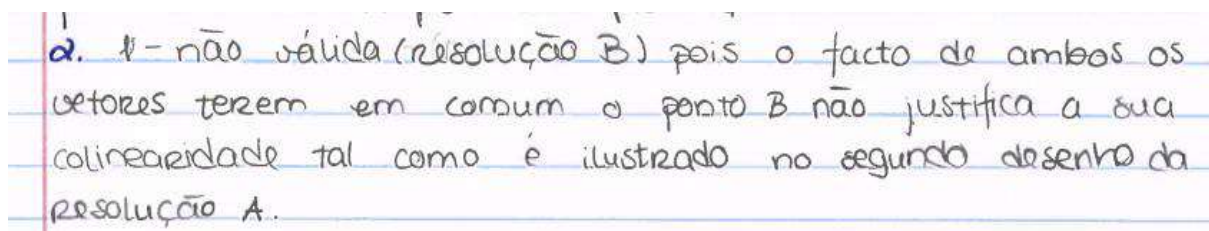 2. 1- não válida (resolução B) pois o facto de ambos os
vetores terem em comum o ponto B não justifica a sua
colinearidade tal como é ilustrado no segundo desenho da
resolução A.